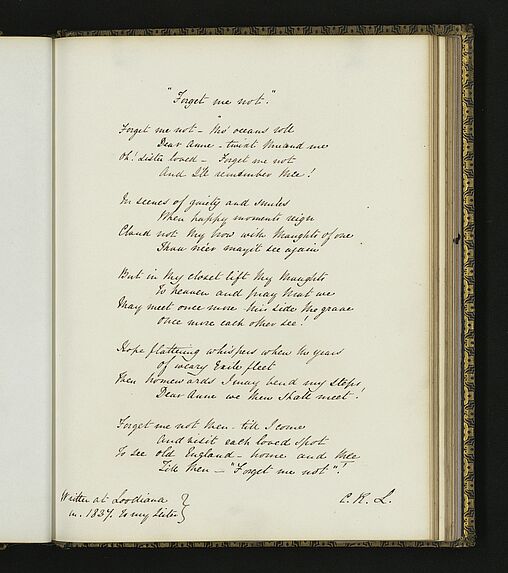 "Forget me not".
Forget me not – tho' oceans roll
Dear Anne – twixt thee and me
Oh! Sister loved – Forget me not
And I'll remember thee!
In scenes of gaiety and smiles
When happy moments reign
Cloud not thy brow with thoughts of one
Thou ne'er mayst see again
But in thy closet lift thy thoughts
To heaven and pray that we
May meet once more this side the grave
Once more each other see!
Hope flattering whispers when the years
Of weary Exile fleet
Then homewards I may bend my steps,
Dear Anne we then shall meet!
Forget me not then – till I come
And visit each loved spot
To see old England – home and thee
Till then – "Forget me not"!
Written at Loodiana
in 1837. to my Sister
C. R. L.